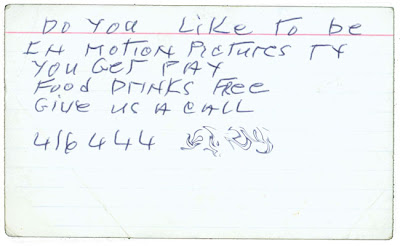 Do You Like To be
IN MOTION PICTURES TY
YOU GET PAY
FOOD DRINKS FREE
GIVE US A CALL
416 444